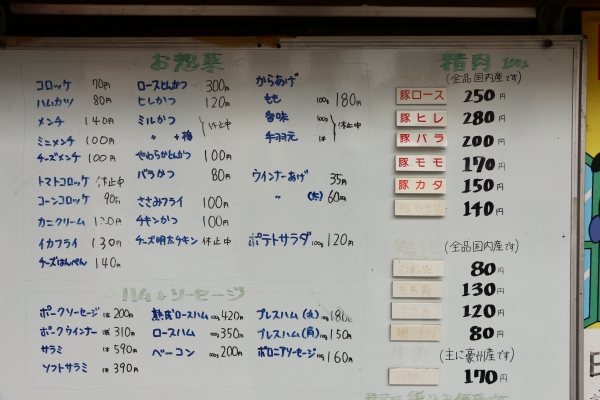 お惣菜
コロッケ 70円
ハムカツ 80円
メンチ 140円
ミニメンチ 100円
チーズメンチ 100円
トマトコロッケ 休止中
コーンコロッケ 90円
カニクリーム
イカフライ 130円
チーズはんぺん 140円
ロースとんかつ 300円
ヒレかつ 120円
ミルかつ
〃 +梅 休止中
やわらかとんかつ 100円
バラかつ 80円
ささみフライ 100円
チキンかつ 100円
チーズ明太チキン 休止中
からあげ
もも 100g 180円
香味 100g
手羽元 1本 休止中
ウインナーあげ 35円
〃 (大) 60円
ポテトサラダ 100g 120円
ハム&ソーセージ
ポークソーセージ 1本 200円
ポークウインナー 1本 310円
サラミ 1本 590円
ソフトサラミ 1本 390円
熟成ロースハム 100g 420円
ロースハム 100g 350円
ベーコン 100g 200円
プレスハム(丸) 100g 180円
プレスハム(角) 100g 150円
ボロニアソーセージ 100g 160円
精肉 100g
(全品国内産です)
豚ロース 250円
豚ヒレ 280円
豚バラ 200円
豚モモ 170円
豚カタ 150円
140円
(全品国内産です)
80円
130円
120円
80円
(主に豪州産です)
170円